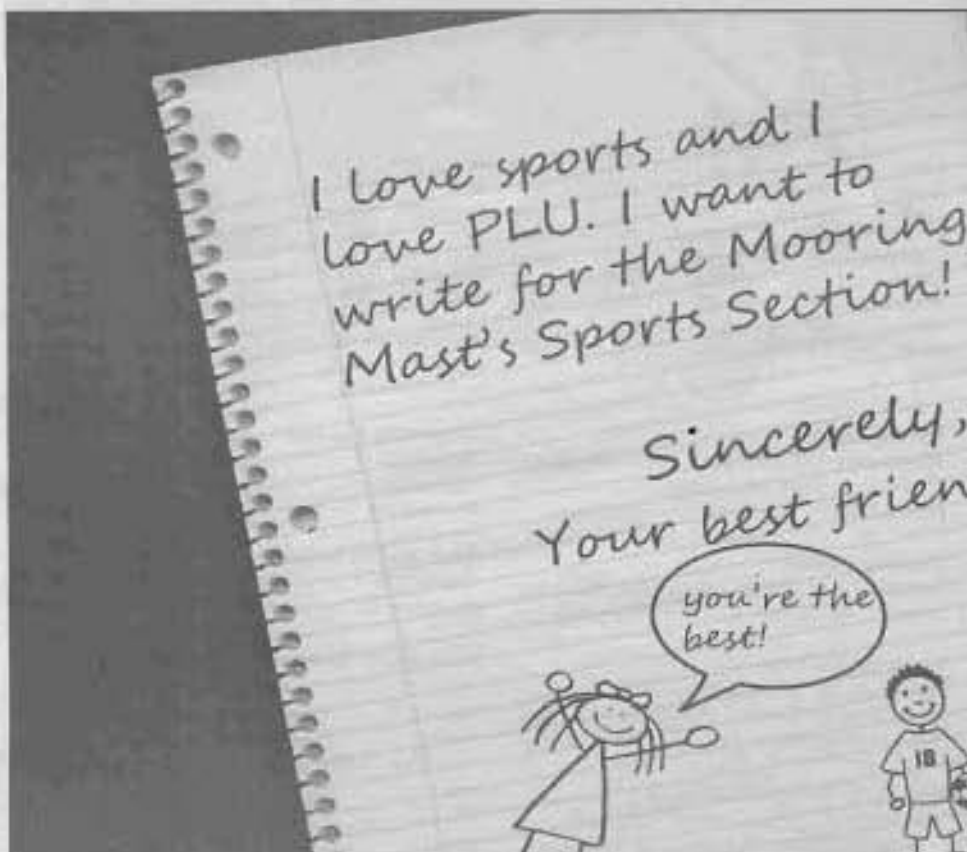 I love sports and I
love PLU. I want to
write for the Mooring
Mast's Sports Section!
Sincerely,
Your best frien
you're the
best!
18